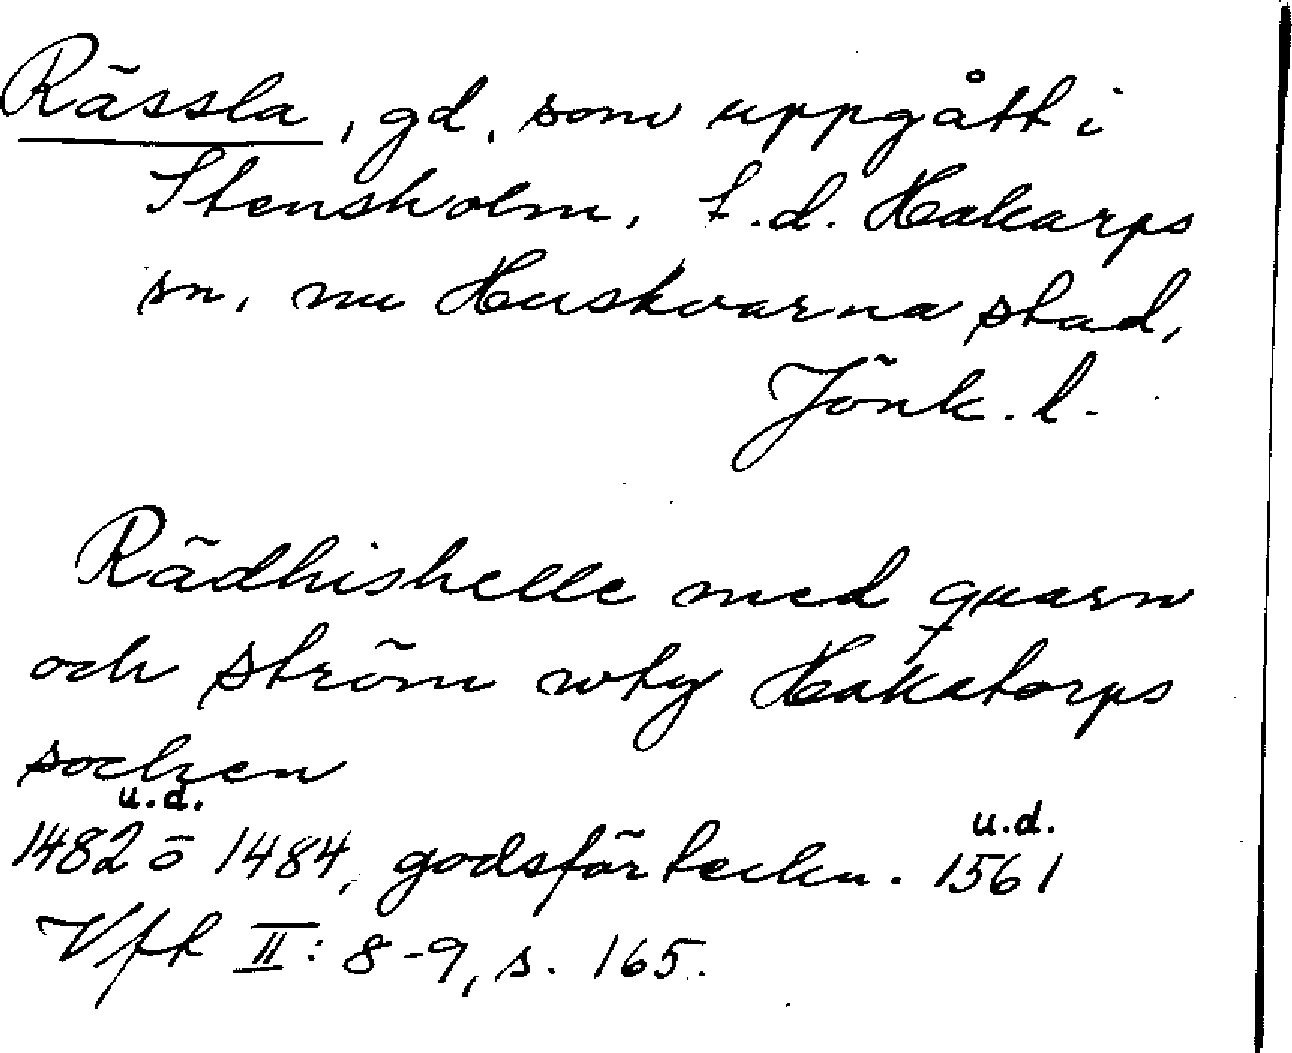 Rässla, gd. som uppgått i
Stensholm, f.d. Hakarps
sn, nu Huskvarna stad,
Jönk. l.
Rädhishelle med quarn
och ström wty Hakatorps
sochen
u.d. u.d.
1482 ō 1484, godsförteckn. 1561
Vft II: 8-9, s. 165.